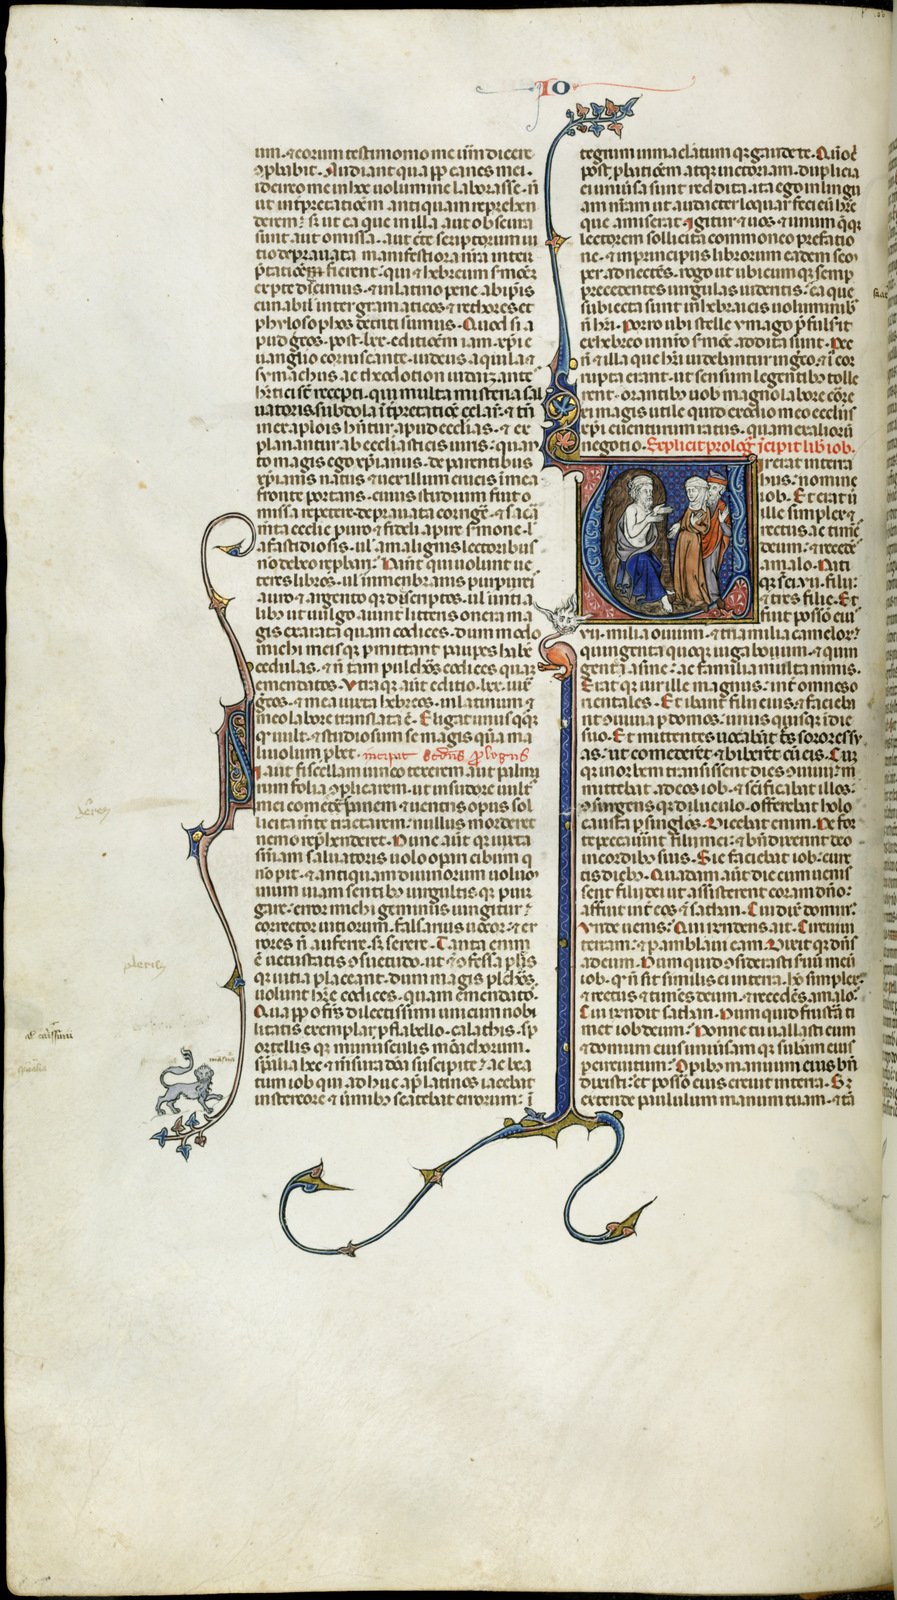 IO
um. ⁊ eorum testimonio me uim dicere
ꝯprobabit. Audiant qua ꝓp̄ canes mei.
idcirco me in hoc uolumine laborasse. ñ
ut int̄pretatiōem antiquam reprehen
derem. sꝫ ut ea que in illa aut obscura
sunt aut omissa. aut c̄te scriptorum ui
tio deprauata manifestiora nr̄a inter
p̄tatiōe fierent. qui ⁊ hebreum smōem
ex ꝑte didicimus. ⁊ in latino pene ab ip̄is
cunabulis inter gramaticos ⁊ rethores et
phylosophos detriti sumus. Quod si a
pud grecos. post .lxx. editiōem iam xp̄i e
uanglio coruscante. iudeus aquila ⁊
symachus ac theodotion iudaiz̄ante
h̄tici sūt recepti. qui multa misteria sal
uatoris subdola īt̄pretatiōe celar̄. ⁊ tn̄
in exaplois hn̄tur apud ecclias. ⁊ ex
planantur ab ecclīasticis uiris. quan
to magis ego xp̄ianus. de parentibus
xp̄ianis natus ⁊ uexillum crucis ī mea
fronte portans. cuius studium fuit o
missa repetere. deprauata corrigē. ⁊ sac̄
mīta ecclie puro ⁊ fideli aperire s̄mone. ł
a fastidiosis. uł a malignis lectoribus
nō debeo rep̄bari. Hānt qui uolunt ue
teres libros. uł in menbranis purpureis
auro ⁊ argento qꝫ descriptos. uł iuntia
libꝫ ut uulgo aiunt litteris onera ma
gis exarata quam codices. dummodo
michi meisqꝫ ꝑmittant paupes habē
cedulas. ⁊ n̄ tam pulchros codices quam
emendatos. Vtraqꝫ aūt editio .lxx. iux̄
grecos. ⁊ mea iuxta hebreos. in latinum
meo labore translata ē. Eligat unusqꝫsqꝫ
qꝫ uult. ⁊ studiosum se magis quam ma
liuolum ꝓbet. incipit scd̄us ꝓlogus
Si aut fiscellam iunco texerem aut palma
rum folia ꝯplicarem. ut in sudore uult9
mei comederem panem ⁊ uentris opus sol
licita mente tractarem: nullus morderet
nemo rep̄henderet. Nunc aūt qꝫ iuxta
sniam saluatoris uolo opari cibum q̄
nō pit. ⁊ antiquam diuinorum uoluo
minum uiam sentibꝫ uirgultisqꝫ pur
gare. error michi geminus infigitur.
corrector uitiorum. falsarius uocor. ⁊ er
rores n̄ auferre. sꝫ serere. Tanta enim
ē uetustatis ꝯsuetudo. ut ⁊ ꝯfessa pluris
qꝫ uitia placeant. dum magis pulchros
uolunt hr̄e codices. quam emendatos.
Qua ꝓp̄ o fr̄s dilectissimi unicum nobi
litatis exemplar ꝓ flabello. calathis. sp
ortellisqꝫ munusculis monachorum.
spūalia hec ⁊ mansura dona suscipite. ⁊ ac bea
tum iob qui adhuc ap̄ latinos iacebat
in stercore ⁊ uermibꝫ scatebat errorum: ī
tegrum inmaculatum qꝫ gaudete. Quō.ē
post ꝓbatiōem atqꝫ uictoriam. duplicia
ei uniūsa sunt reddita. ita ego in lingua
nr̄am ut audacter loquar feci eū hr̄e
que amiserat. Igitur ⁊ uos ⁊ unum qꝫqꝫ
lectorem solicita commoneo prefatio
ne. ⁊ in principiis librorum eadem sem
per adnectens. rogo ut ubicumqꝫ semp
precedentes uirgulas uidetis. ea que
subiecta sunt in hebraicis uoluminibꝫ
n̄ h̄ri. Porro ubi stelle ymago p̄fulsit
ex hebreo in nr̄o s̄mōe addita sunt. Nec
n̄ ⁊ illa que hr̄i uidebantur in greco. ⁊ ī cor
rupta erant. ut sensum legentibꝫ tolle
rent. orantibꝫ uob̄ magno labore corre
xi magis utile quid ex otio meo eccliis
xp̄i euenturum ratus. quam ex aliorū
negotio. Explicit prologꝫ īcipit lib̄ iob.
Vir erat in terra
hus. nomine
iob. Et erat ū
ille simplex ⁊
rectus ac timēs
deum. ⁊ recedēs
a malo. Nati
qꝫ sūt ei .vii. filii.
⁊ tres filie. Et
fuit possō eiꝰ
vii. milia ouium. ⁊ tria milia camelorꝫ
quingenta quoqꝫ iuga boum. ⁊ quin
gente asine. ac familia multa nimis.
Erat qꝫ uir ille magnus. inter omnes o
rientales. Et ibant filii eius. ⁊ faciebā
ut ꝯuiuia ꝑ domos. unus quisqꝫ ī die
suo. Et mittentes uocabāt tr̄es sorores su
as. ut comederēt ⁊ biberēt cū eis. Cūqꝫ
qꝫ in orbem transissent dies ꝯuiuii. m
mittebat ad eos iob. ⁊ sc̄ificabat illos.
ꝯsurgensqꝫ diluculo. offerebat holo
causta ꝑ singlos. Dicebat enim. Ne for
te peccauerīt filii mei. ⁊ bn̄dixerint deo
in cordibꝫ suis. Sic faciebat iob. cunc
tis diebꝫ. Quadam aūt die cum uenis
sent filii dei ut assisterent coram dn̄o.
affuit int̄ eos ⁊ sathan. Cui dix̄ domin9.
Vnde uenis. Qui rn̄dens ait. Circuiui
terram. ⁊ ꝑambulaui eam. Dixit qꝫ dn̄s
ad eum. Numquid ꝯsiderasti seruū meū
iob. qꝫ n̄ sit similis ei in terra. hō simplex
⁊ rectus ⁊ timēs deum. ⁊ recedēs a malo.
Cui rn̄dit sathan. Numquid frustra ti
met iob deum. Nonne tu uallasti eum
⁊ domum eius uniūsam qꝫ subam eius
per circuitum. Opibꝫ manuum eius bn̄
dixisti. ⁊ posseō eius creuit in terra. Sꝫ
extende paululum manum tuam. ⁊ tā